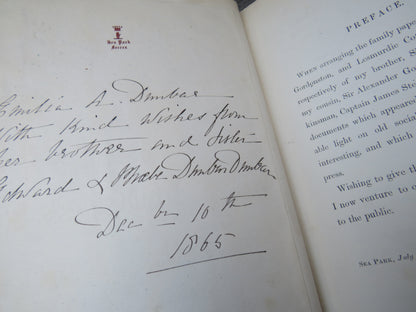 Sea Park
Forres
Emilia A. Dunbar
With kind wishes from
her brother and sister
Edward & Phœbe Dunbar Dunbar
Decbr 10th
1865
PREFACE.
WHEN arranging the family pape
Gordonston, and Lesmurdie Co
respectively of my brother, S
my cousin, Sir Alexander Go
kinsman, Captain James Ste
documents which appeare
able light on old social
interesting, and which
press.
Wishing to give th
I now venture to
to the public.
SEA PARK, July